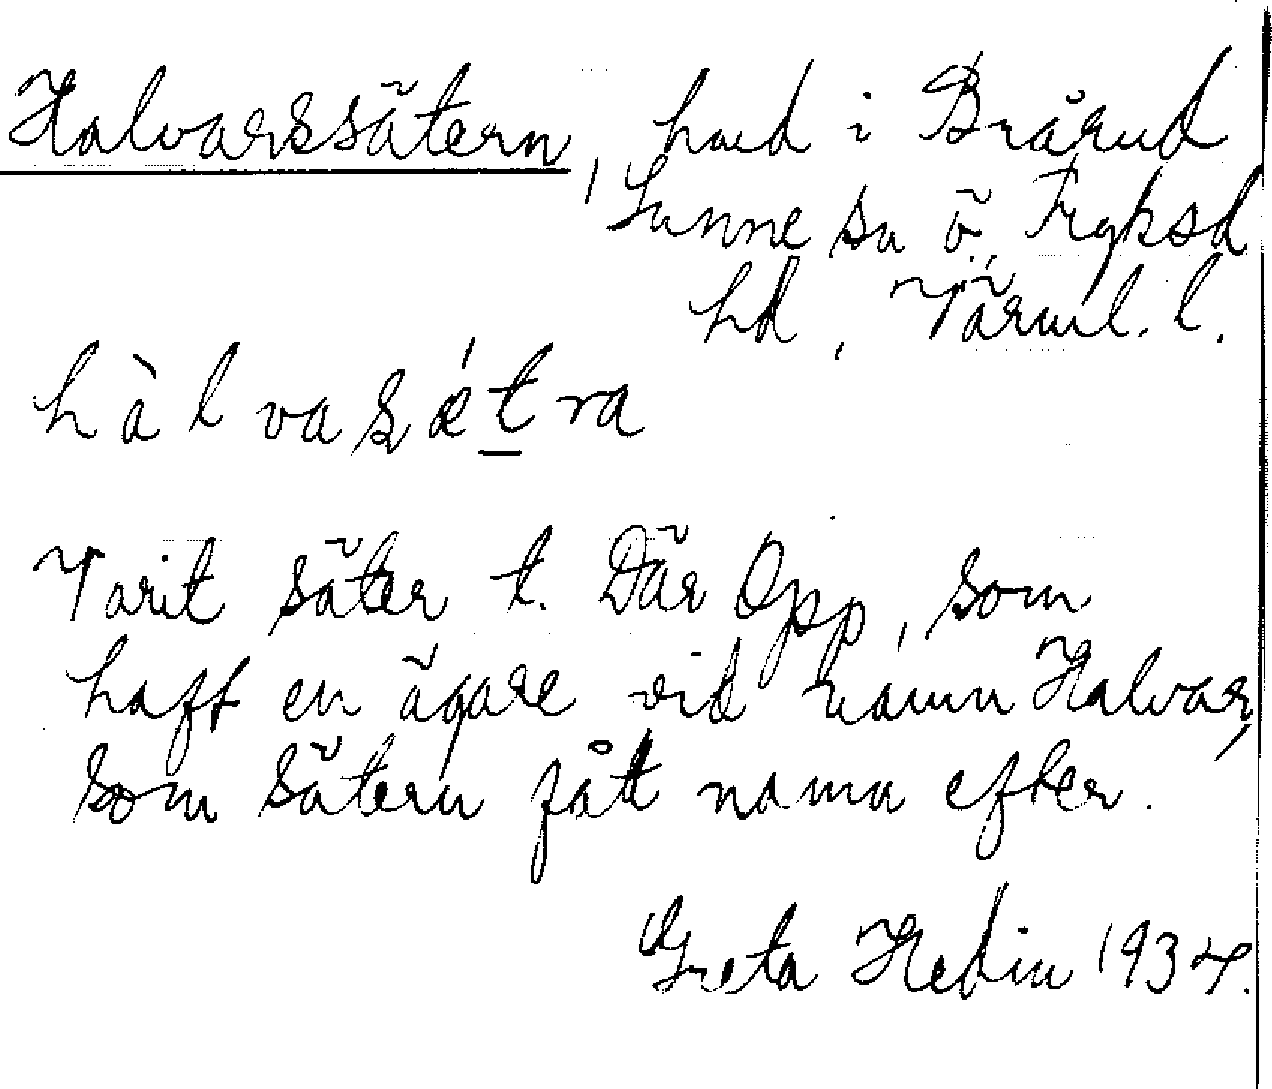 Halvarssätern, hmd i Brårud
Sunne sn ö. Fryksd
hd, Värml. l.
hàlvasǽtra
Varit säter t. Där Opp, som
haft en ägare vid namn Halvar,
som sätern fått namn efter.
Greta Hedin 1934.